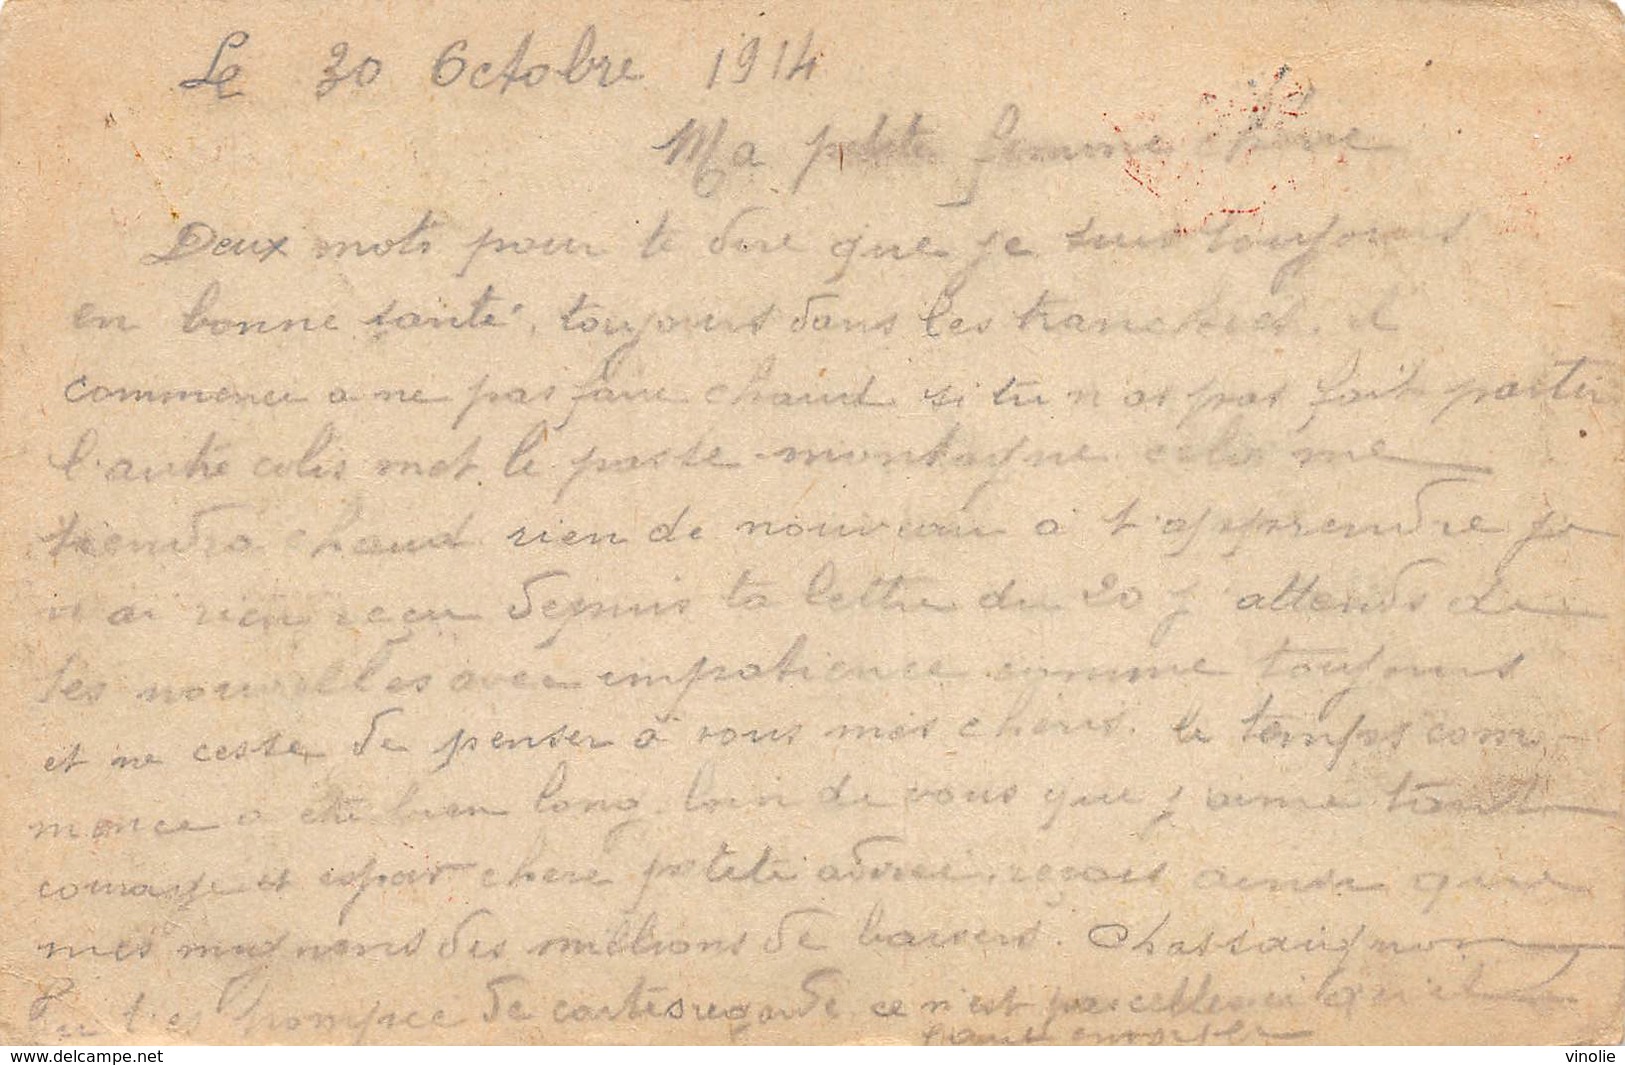 Le 30 Octobre 1914
Ma petite femme chérie
Deux mots pour te dire que je suis toujours
en bonne santé, toujours dans les tranchées. il
commence a ne pas faire chaud si tu n as pas fait partir
l'autre colis met le passe montagne cela me
tiendra chaud rien de nouveau a t'apprendre je
n ai rien reçu depuis ta lettre du 20 j attends de
tes nouvelles avec impatience comme toujours
et ne cesse de penser à vous mes cheris. le temps com-
mence a etre bien long loin de vous que j aime tant
courage et espoir chere petite adorée, reçois ainsi que
mes mignons des millions de baisers. Chassaignon
Tu t'es trompée de cartes regarde ce n'est pas celles ci qu'il
faut envoyer
delcampe.net
vinolie